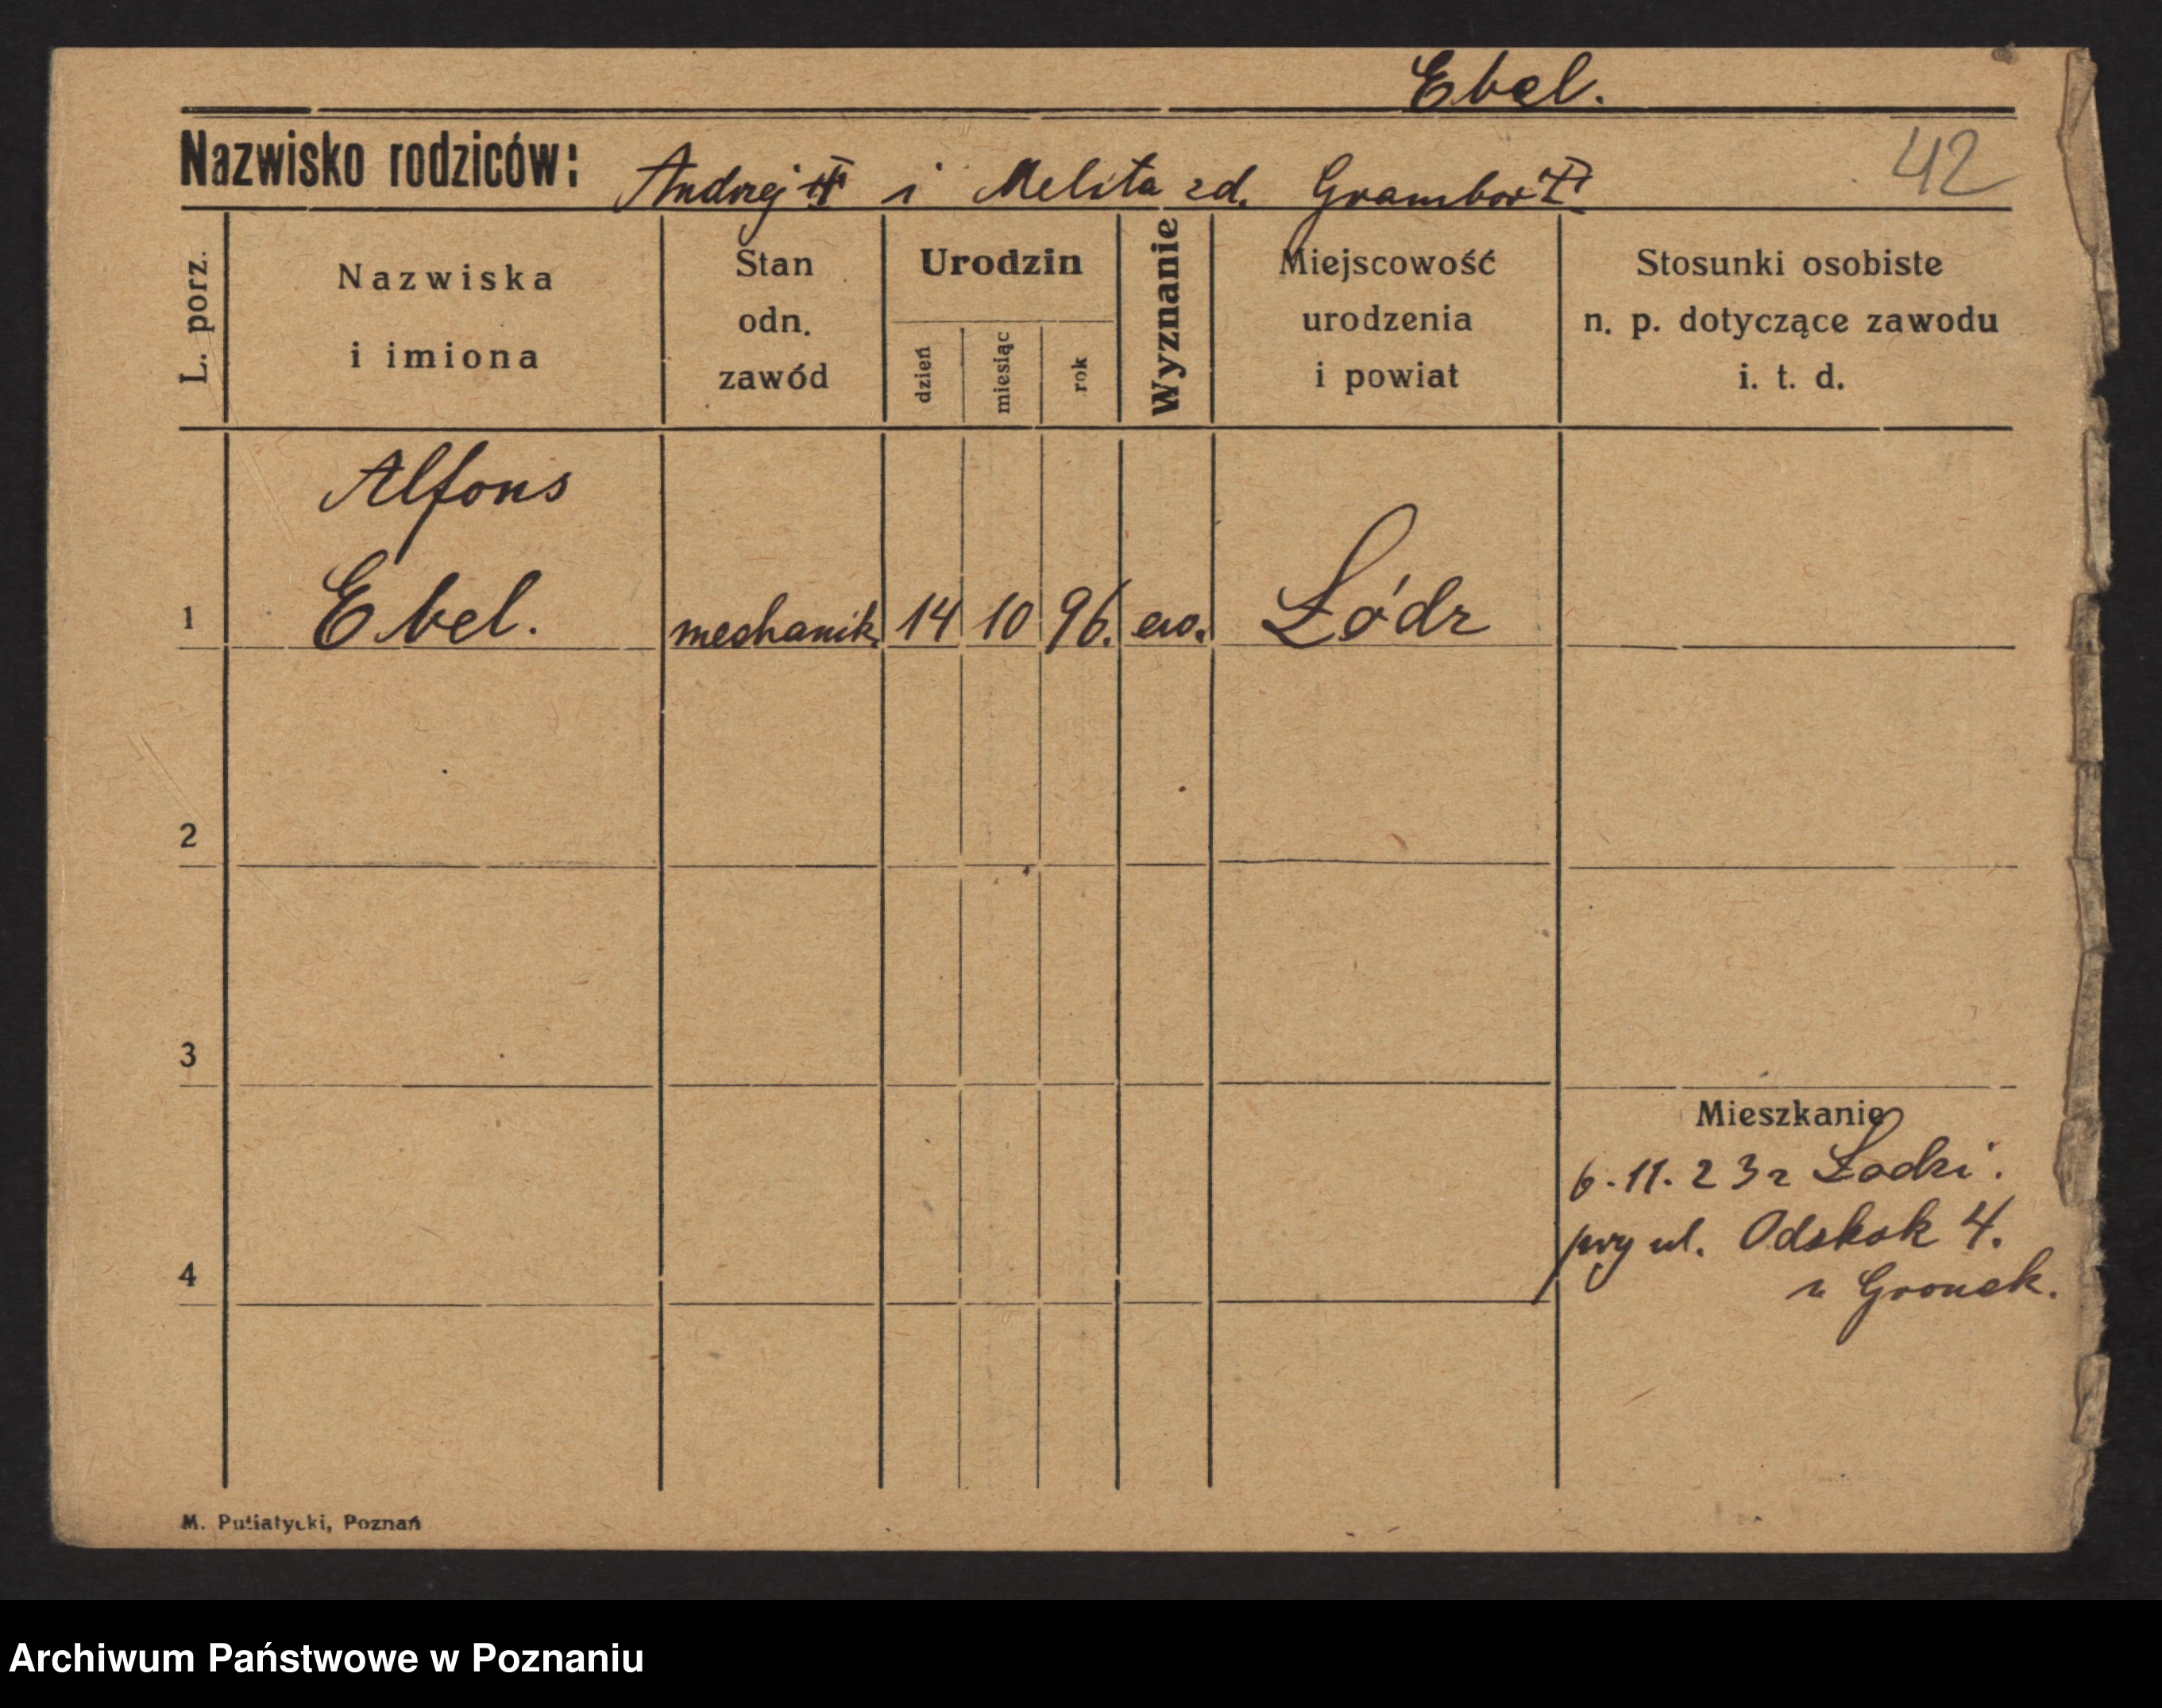 Ebel.
Nazwisko rodziców: Andrzej i Melita zd. Grambor
42
L. porz.
Nazwiska
i imiona
Stan
odn.
zawód
Urodzin
dzień
miesiąc
rok
Wyznanie
Miejscowość
urodzenia
i powiat
Stosunki osobiste
n. p. dotyczące zawodu
i. t. d.
Alfons
1 Ebel. mechanik. 14 10 96. ew. Łódz
2
3
Mieszkanie
6.11.23 z Łodzi.
przy ul. Odskok 4.
4
u Gronek.
M. Putiatycki, Poznań
Archiwum Państwowe w Poznaniu